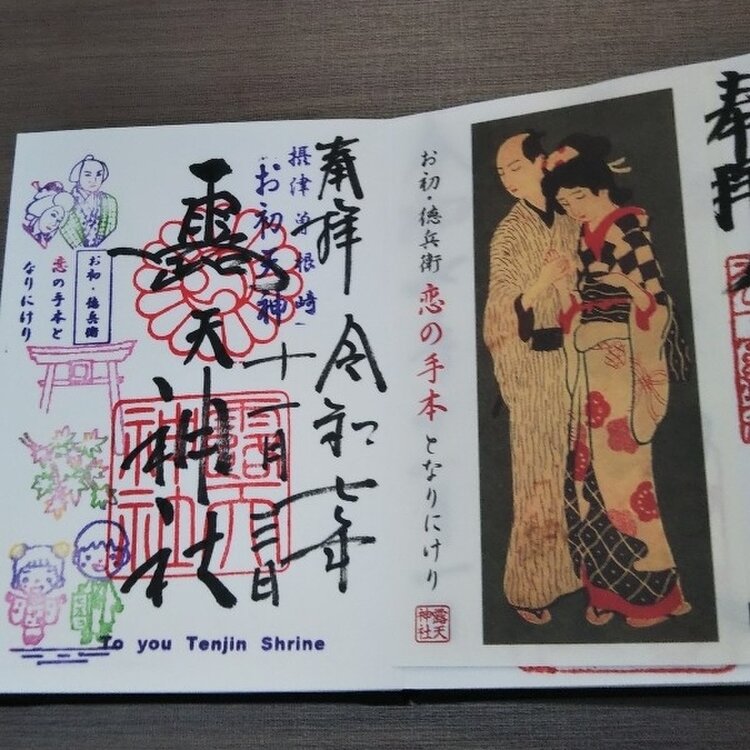 奉拝
令和七年
十一月三日
摂津曽根崎
お初天神
露天神社
露天神社
お初・徳兵衛
恋の手本と
なりにけり
To you Tenjin Shrine
お初・徳兵衛 恋の手本となりにけり
露天神社
奉拝